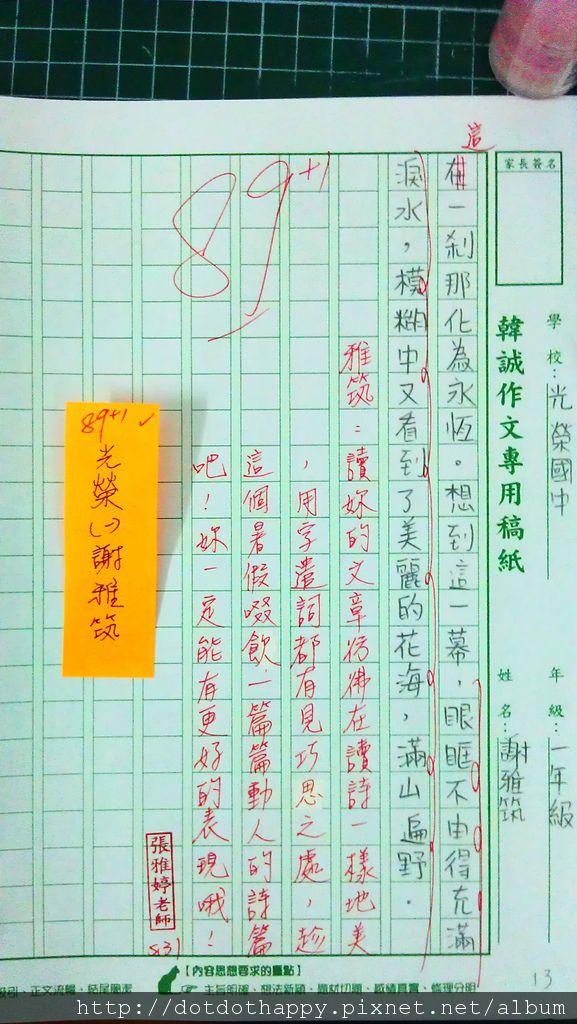 家長簽名
學校：光榮國中
年級：一年級
韓誠作文專用稿紙
姓名：謝雅筑
13
這
在一剎那化為永恆。想到這一幕，眼眶不由得充滿
淚水，模糊中又看到了美麗的花海，滿山遍野。
89+1
雅筑：讀妳的文章彷彿在讀詩一樣地美
，用字遣詞都有見巧思之處，趁
這個暑假啜飲一篇篇動人的詩篇
吧！妳一定能有更好的表現哦！
張雅婷老師
8/31
89+1
光榮(一)謝雅筑
【內容思想要求的重點】
吸引、正文流暢、結尾圓潔
主旨明確、想法新穎、題材切題、感情真實、條理分明
http://dotdothappy.pixnet.net/album